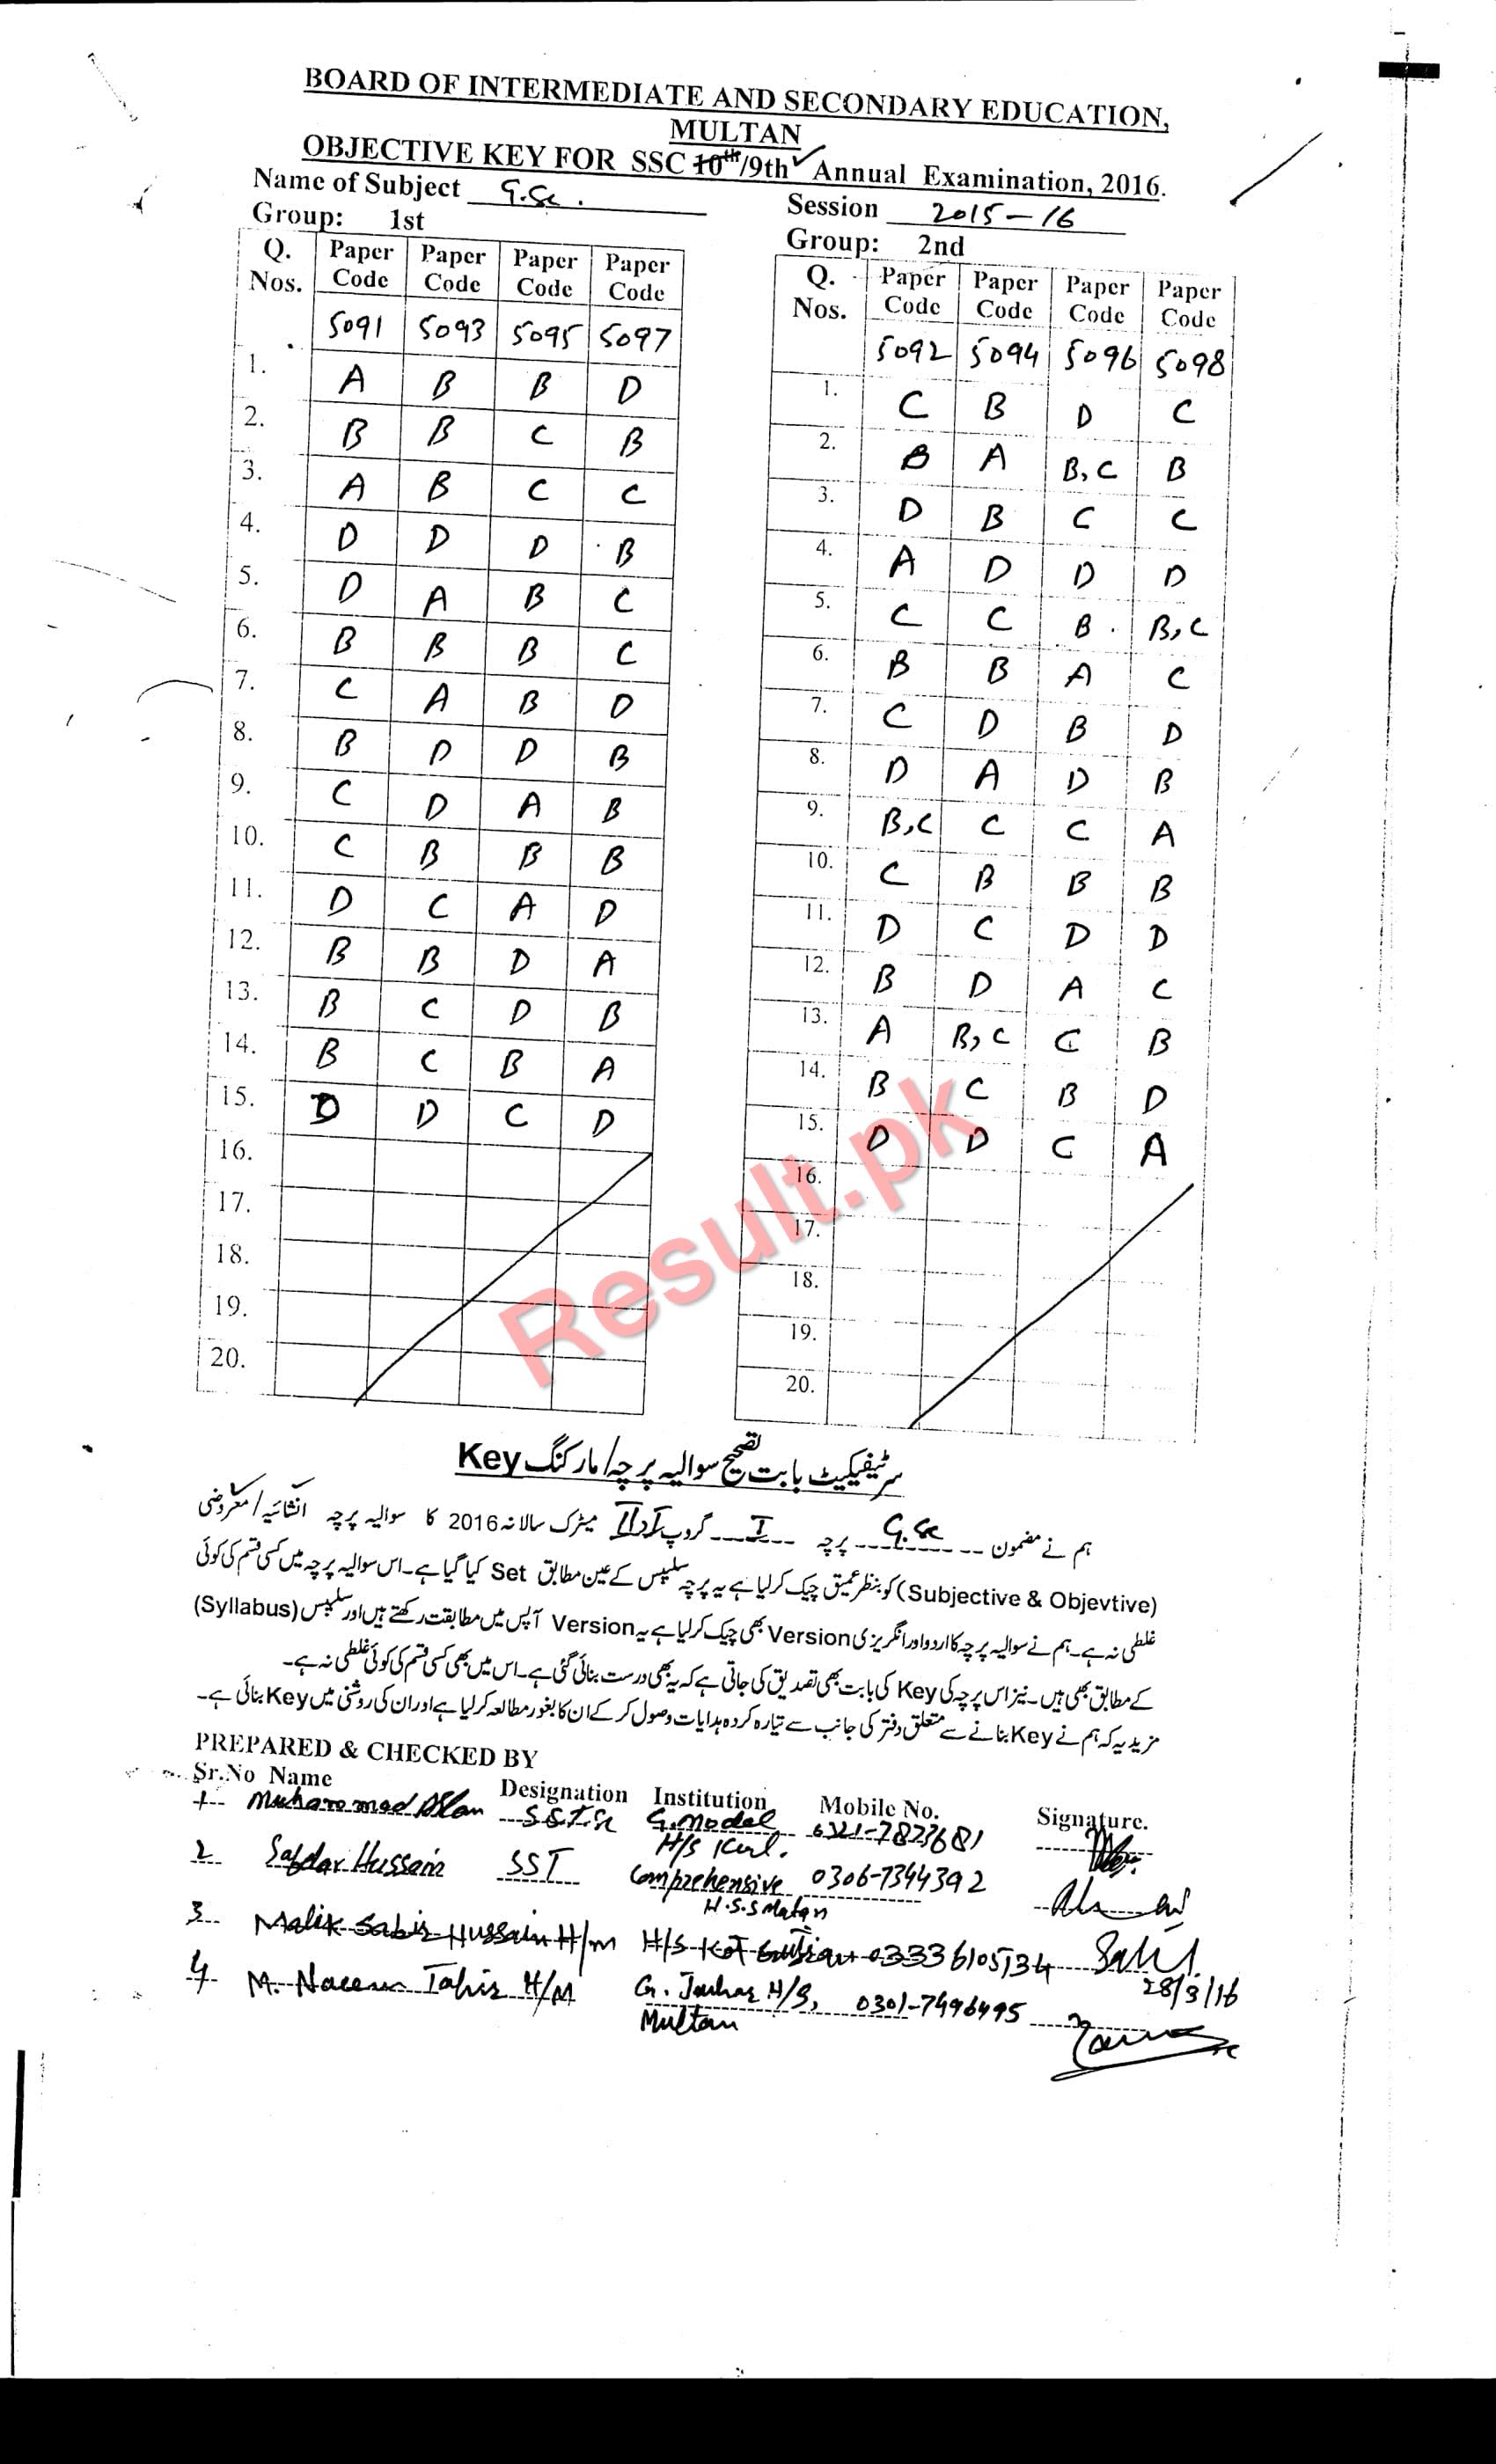 BOARD OF INTERMEDIATE AND SECONDARY EDUCATION,
MULTAN
OBJECTIVE KEY FOR SSC 10th/9th Annual Examination, 2016.
Name of Subject G.Sc.
Session 2015-16
Group: 1st
Group: 2nd
Q. Nos. Paper Code Paper Code Paper Code Paper Code
5091 5093 5095 5097
1. A B B D
2. B B C B
3. A B C C
4. D D D B
5. D A B C
6. B B B C
7. C A B D
8. B D D B
9. C D A B
10. C B B B
11. D C A D
12. B B D A
13. B C D B
14. B C B A
15. D D C D
16.
17.
18.
19.
20.
Q. Nos. Paper Code Paper Code Paper Code Paper Code
5092 5094 5096 5098
1. C B D C
2. B A B,C B
3. D B C C
4. A D D D
5. C C B B,C
6. B B A C
7. C D B D
8. D A D B
9. B,C C C A
10. C B B B
11. D C D D
12. B D A C
13. A B,C C B
14. B C B D
15. D D C A
16.
17.
18.
19.
20.
Result.pk
سرٹیفکیٹ بابت تصحیح سوالیہ پرچہ/مارکنگ Key
ہم نے مضمون G.Sc پرچہ I گروپ I اور II میٹرک سالانہ 2016 کا سوالیہ پرچہ انشائیہ/معروضی
(Subjective & Objevtive) کو بنظر عمیق چیک کرلیا ہے یہ پرچہ سلیبس کے عین مطابق Set کیا گیا ہے۔ اس سوالیہ پرچہ میں کسی قسم کی کوئی
غلطی نہ ہے۔ ہم نے سوالیہ پرچہ کا اردو اور انگریزی Version بھی چیک کرلیا ہے یہ Version آپس میں مطابقت رکھتے ہیں اور سلیبس (Syllabus)
کے مطابق بھی ہیں۔ نیز اس پرچہ کی Key کی بابت بھی تصدیق کی جاتی ہے کہ یہ بھی درست بنائی گئی ہے۔ اس میں بھی کسی قسم کی کوئی غلطی نہ ہے۔
مزید یہ کہ ہم نے Key بنانے سے متعلق دفتر کی جانب سے تیار کردہ ہدایات وصول کر کے ان کا بغور مطالعہ کرلیا ہے اور ان کی روشنی میں Key بنائی ہے۔
PREPARED & CHECKED BY
Sr.No Name Designation Institution Mobile No. Signature.
1 S.S.T.Sc G.Model H/S
2 Safdar Hussain SST Comprehensive H.S.S Multan 0306-7344392
3 Malik Sabir Hussain H/m H/S Kot 03336105134
28/3/16
4 M. Naeem Tahir H/M G. H/S, Multan 0301-7496495